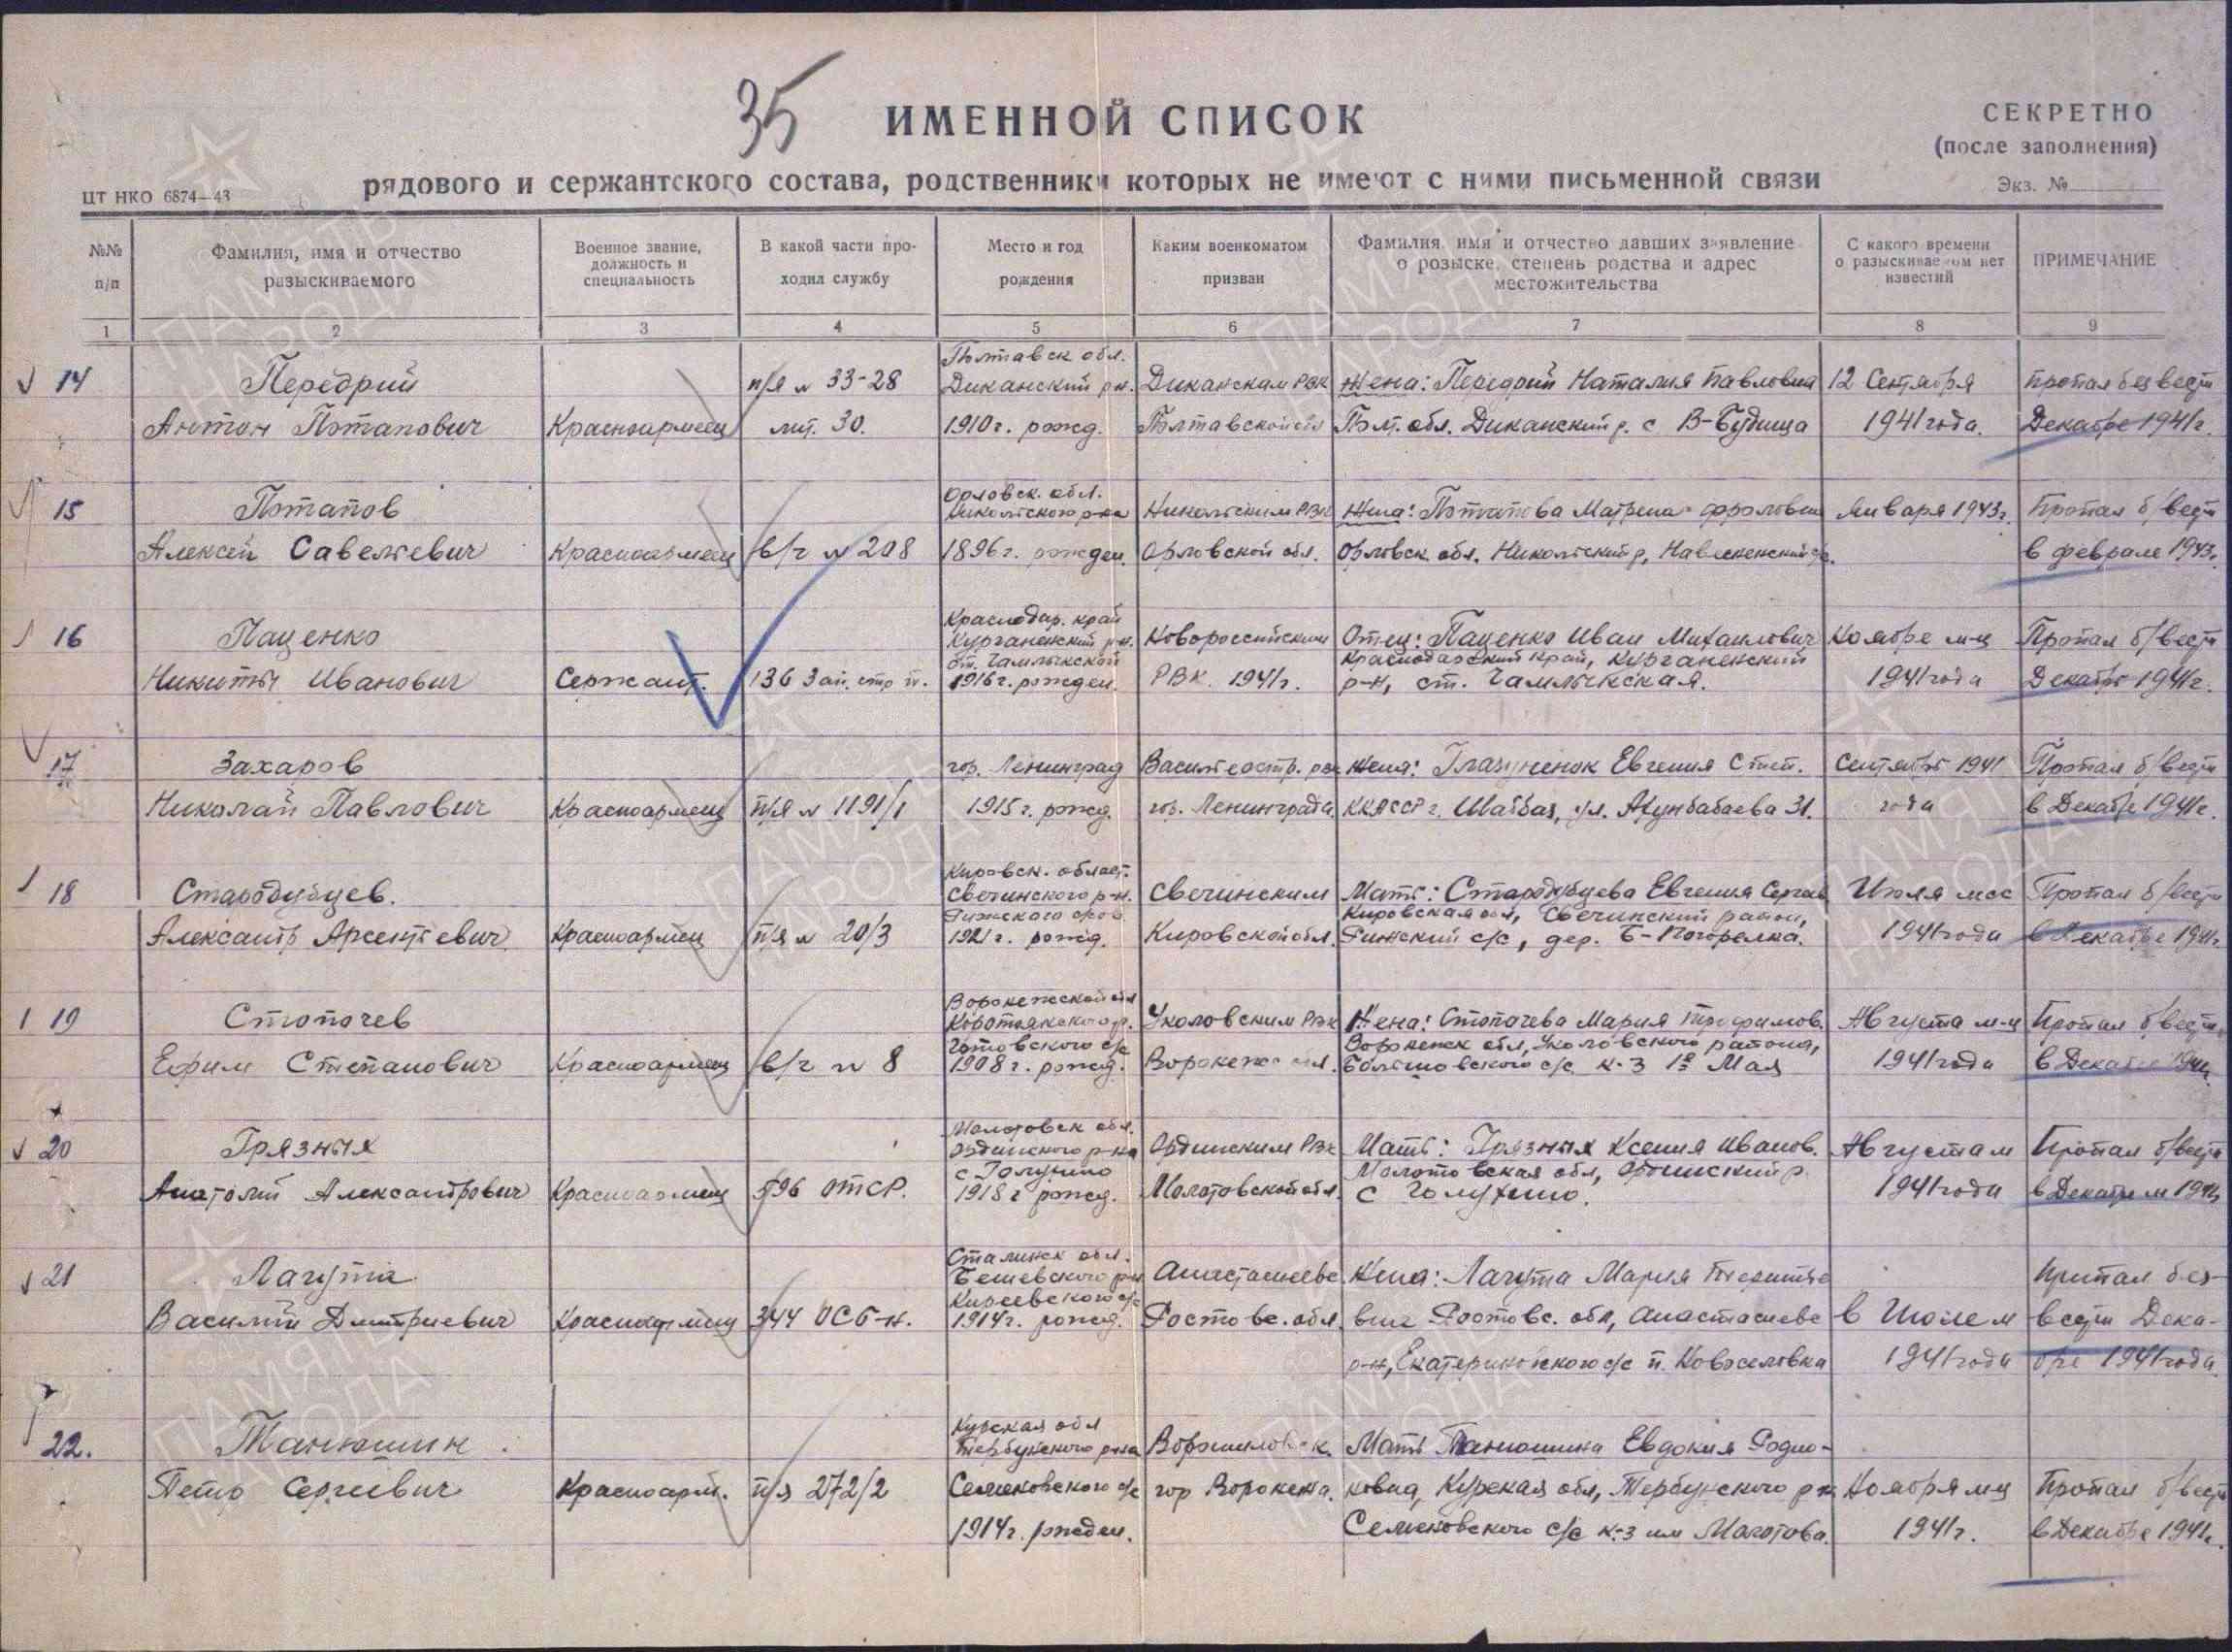 35
ИМЕННОЙ СПИСОК
СЕКРЕТНО
(после заполнения)
Экз. №
рядового и сержантского состава, родственники которых не имеют с ними письменной связи
ЦТ НКО 6874—43
№№ п/п
Фамилия, имя и отчество разыскиваемого
Военное звание, должность и специальность
В какой части проходил службу
Место и год рождения
Каким военкоматом призван
Фамилия, имя и отчество давших заявление о розыске, степень родства и адрес местожительства
С какого времени о разыскиваемом нет известий
ПРИМЕЧАНИЕ
1 2 3 4 5 6 7 8 9
Полтавск обл.
14 Передрий п/я № 33-28 Диканский р-н. Диканским РВК Жена: Передрий Наталия Павловна 12 Сентября пропал без вести
Антон Потапович Красноармеец лит. 30. 1910 г. рожд. Полтавской обл Полт. обл. Диканский р. с В-Будища 1941 года. Декабре 1941 г.
Орловск. обл.
15 Потапов Никольского р-на Никольским РВК Жена: Потапова Матрена Фроловна Января 1943 г. Пропал б/вести
Алексей Савельевич Красноармеец в/ч № 208 1896 г. рожден. Орловской обл. Орловск. обл. Никольский р, в феврале 1943 г.
Краснодар. край
16 Паценко Курганенский р-н. Новороссийским Отец: Паценко Иван Михайлович Ноябре м-ц Пропал б/вести
ст. Чамлыкской Краснодарский край, Курганенский
Никиты Иванович Сержант. 136 Зап. стр п. 1916 г. рожден. РВК. 1941 г. р-н, ст. Чамлыкская. 1941 года Декабрь 1941 г.
17 Захаров гор. Ленинград Василеостр. рвк Жена: Евгения Степ. Сентябрь 1941 Пропал б/вести
Николай Павлович Красноармеец п/я № 1191/1 1915 г. рожд. гор. Ленинграда ККАССР г. Шаббаз, ул. Ахунбабаева 31. года в Декабре 1941 г.
Кировск. област.
18 Стародубцев. Свечинского р-н. Свечинским Мать: Стародубцева Евгения Сергеев Июля мес Пропал б/вести
Кировская обл, Свечинский район,
Александр Арсентьевич Красноармеец п/я № 20/3 1921 г. рожд. Кировской обл. с/с, дер. Б-Погорелка. 1941 года в Декабре 1941 г.
Воронежской обл
19 Стопочев Коротоякского р. Уколовским РВК Жена: Стопачева Мария Трофимов. Августа м-ц Пропал б/вести
с/с Воронежск обл, Уколовского района,
Ефим Степанович Красноармеец в/ч № 8 1908 г. рожд. Воронежс обл. с/с к-з 1º Мая 1941 года в Декабре 1941
Молотовск обл.
20 Грязных Ординского р-на Ординским РВК Мать: Грязных Ксения Иванов. Августа м Пропал б/вести
с Голухино Молотовская обл, Ординский р.
Анатолий Александрович Красноармеец 596 ОТСР. 1918 г рожд. Молотовской обл. с Голухино. 1941 года в Декабре м 1941
Сталинск обл.
21 Лагута Бешевского р-н Анастасиевс Жена: Лагута Мария Пропал без-
с/с
Василий Дмитриевич Красноармеец 344 ОСБ-н. 1914 г. рожд. Ростовс. обл. вна Ростовс. обл, Анастасиевс в Июле м вести Дека-
р-н, с/с п. Новоселовка 1941 года бре 1941 года.
Курская обл
22. Танюшин Тербунского р-на Ворошиловск Мать Танюшина Евдокия Родио-
Петр Сергеевич Красноарм. п/я 272/2 Семеновского с/с гор Воронежа. новна, Курская обл, Тербунского р-н Ноября м-ц Пропал б/вести
1914 г. рожден. Семеновского с/с к-з им Молотова. 1941 г. в Декабре 1941 г.
ПАМЯТЬ НАРОДА